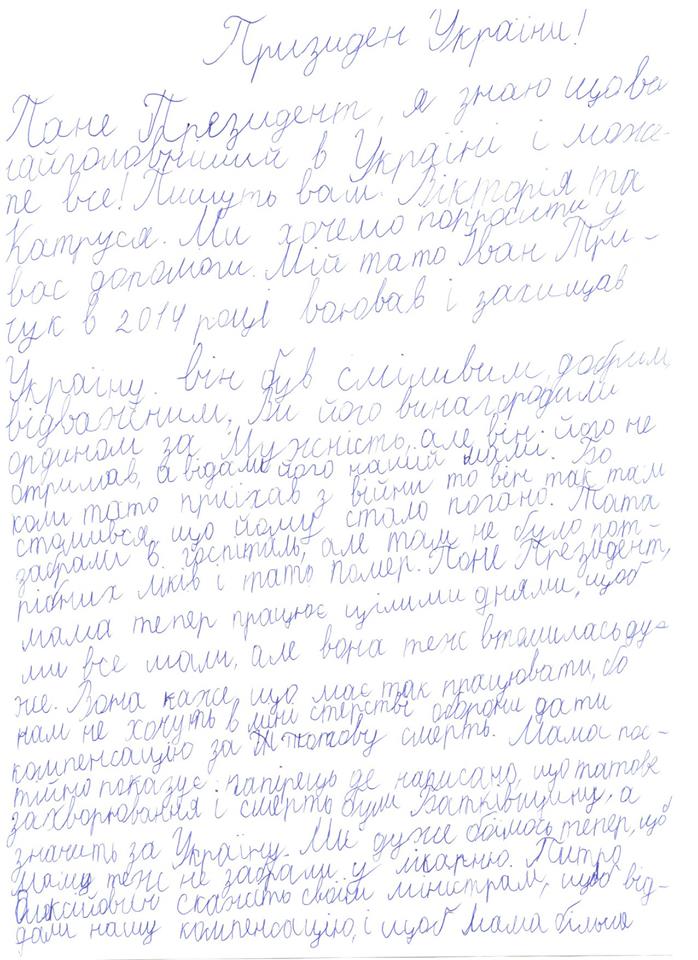 Призиден України!
Пане Президент, я знаю що ви
найголовніший в Україні і може-
те все! Пишуть вам Вікторія та
Катруся. Ми хочемо попросити у
вас допомоги. Мій тато Іван Три-
чук в 2014 році воював і захищав
Україну. він був сміливим, добрим,
відважним, Ви його винагородили
ордином за Мужність, але він його не
отримав, а відали його нашій мамі. Бо
коли тато приїхав з війни то він так там
стомився, що йому стало погано. Тата
забрали в госпіталь, але там не було пот-
рібних ліків і тато помер. Пане Президент,
мама тепер працює цілими днями, щоб
ми все мали, але вона теж втомилась ду-
же. Вона каже що має так працювати, бо
нам не хочуть в міністерстві оборони дати
компенсацію за татову смерть. Мама пос-
тійно показує папірець де написано, що татове
захворювання і смерть були Батківщину, а
значить за Україну. Ми дуже боїмось тепер, щоб
маму теж не забрали у лікарню. Питро
Олексійович скажіть своїм міністрам, щоб від-
дали нашу компенсацію, і щоб мама більше